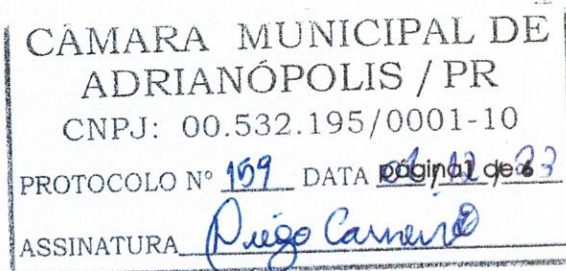 CÂMARA MUNICIPAL DE
ADRIANÓPOLIS / PR
CNPJ: 00.532.195/0001-10
PROTOCOLO Nº 159 DATA página1 de 6
ASSINATURA Diego Carneiro